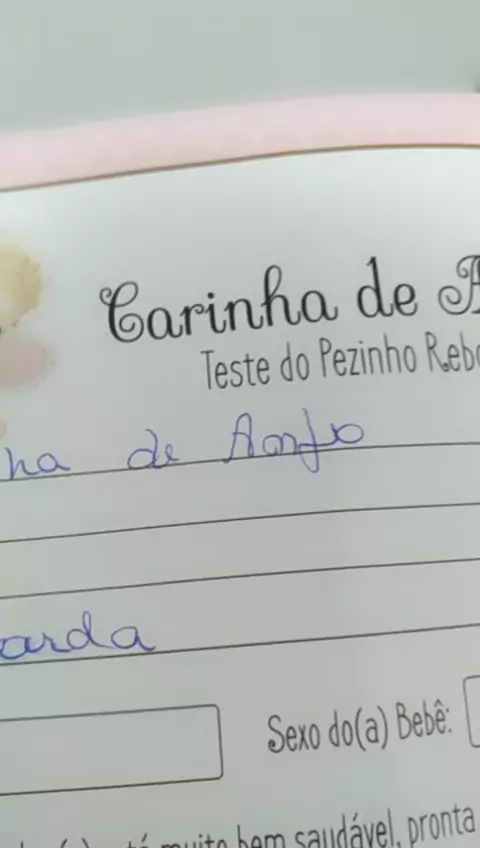 Carinha de A
Teste do Pezinho Reb
ha de Anjo
arda
Sexo do(a) Bebê:
muito bem saudável, pronta